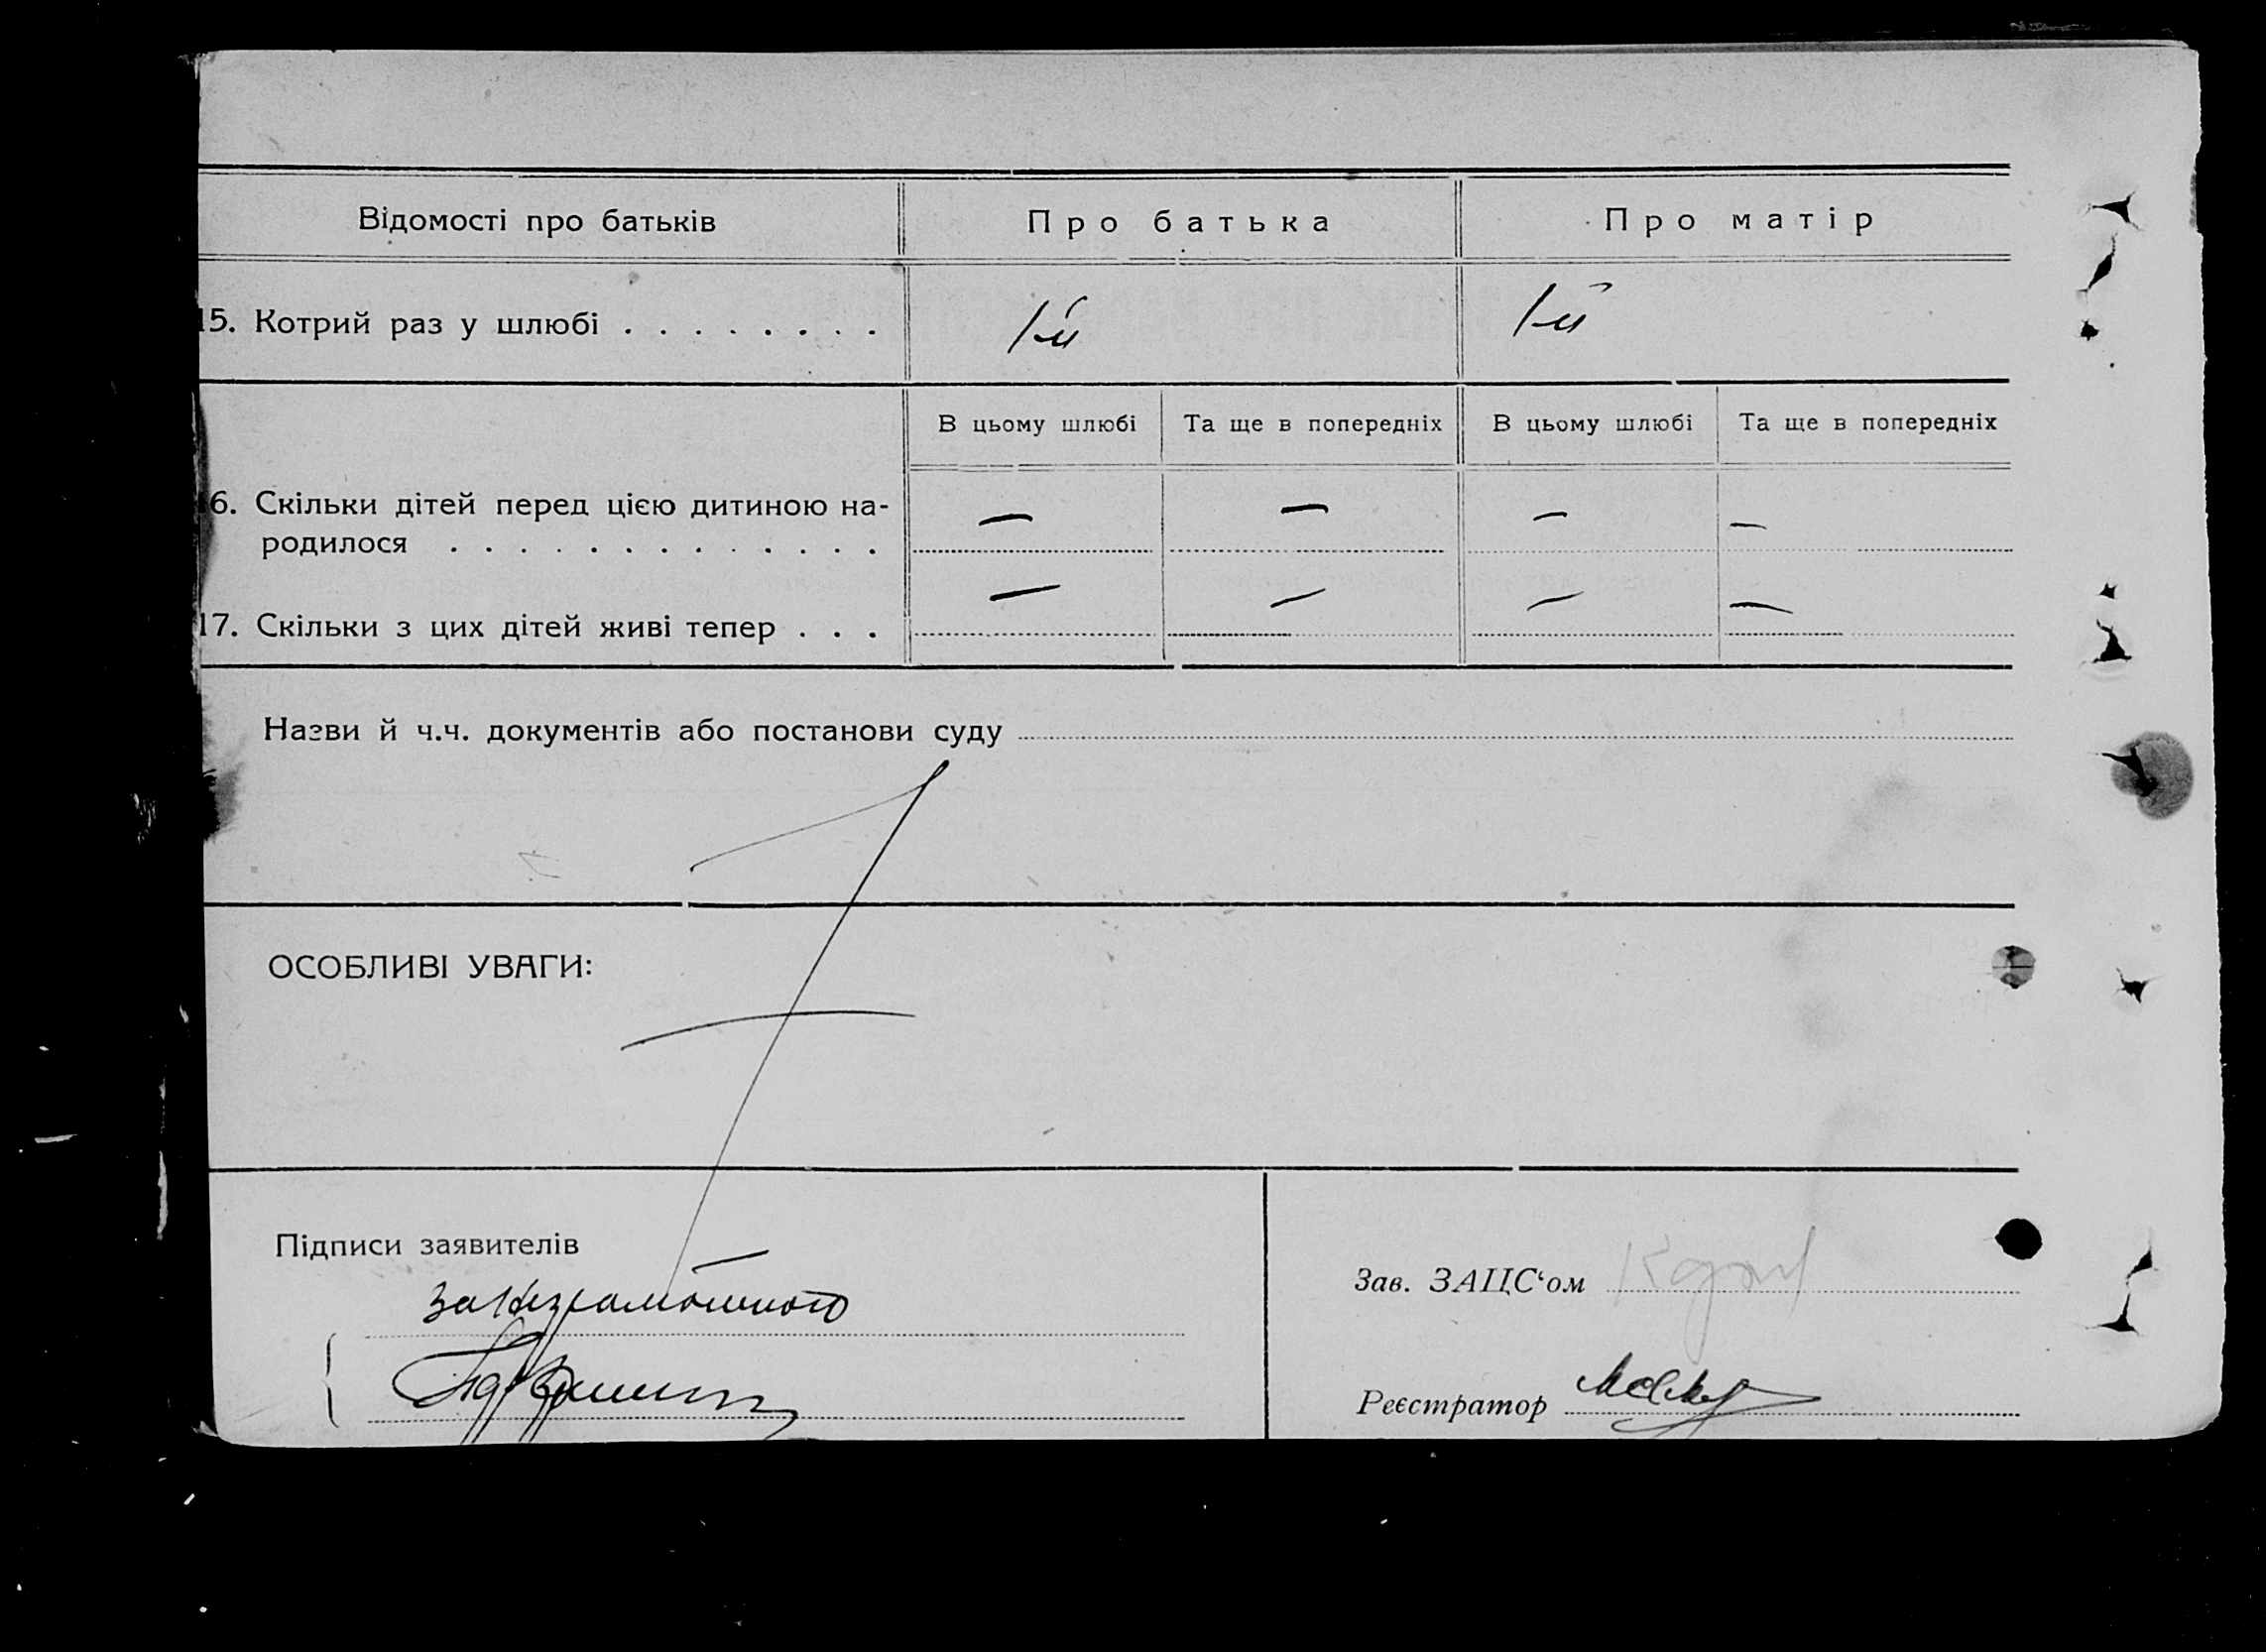 Відомості про батьків Про батька Про матір
15. Котрий раз у шлюбі . . . . . . . . 1-й 1-й
В цьому шлюбі Та ще в попередніх В цьому шлюбі Та ще в попередніх
6. Скільки дітей перед цією дитиною на-
родилося . . . . . . . . . . . . . — — — —
17. Скільки з цих дітей живі тепер . . . — — — —
Назви й ч.ч. документів або постанови суду
ОСОБЛИВІ УВАГИ:
Підписи заявителів
Зав. ЗАЦС‘ом
Реєстратор